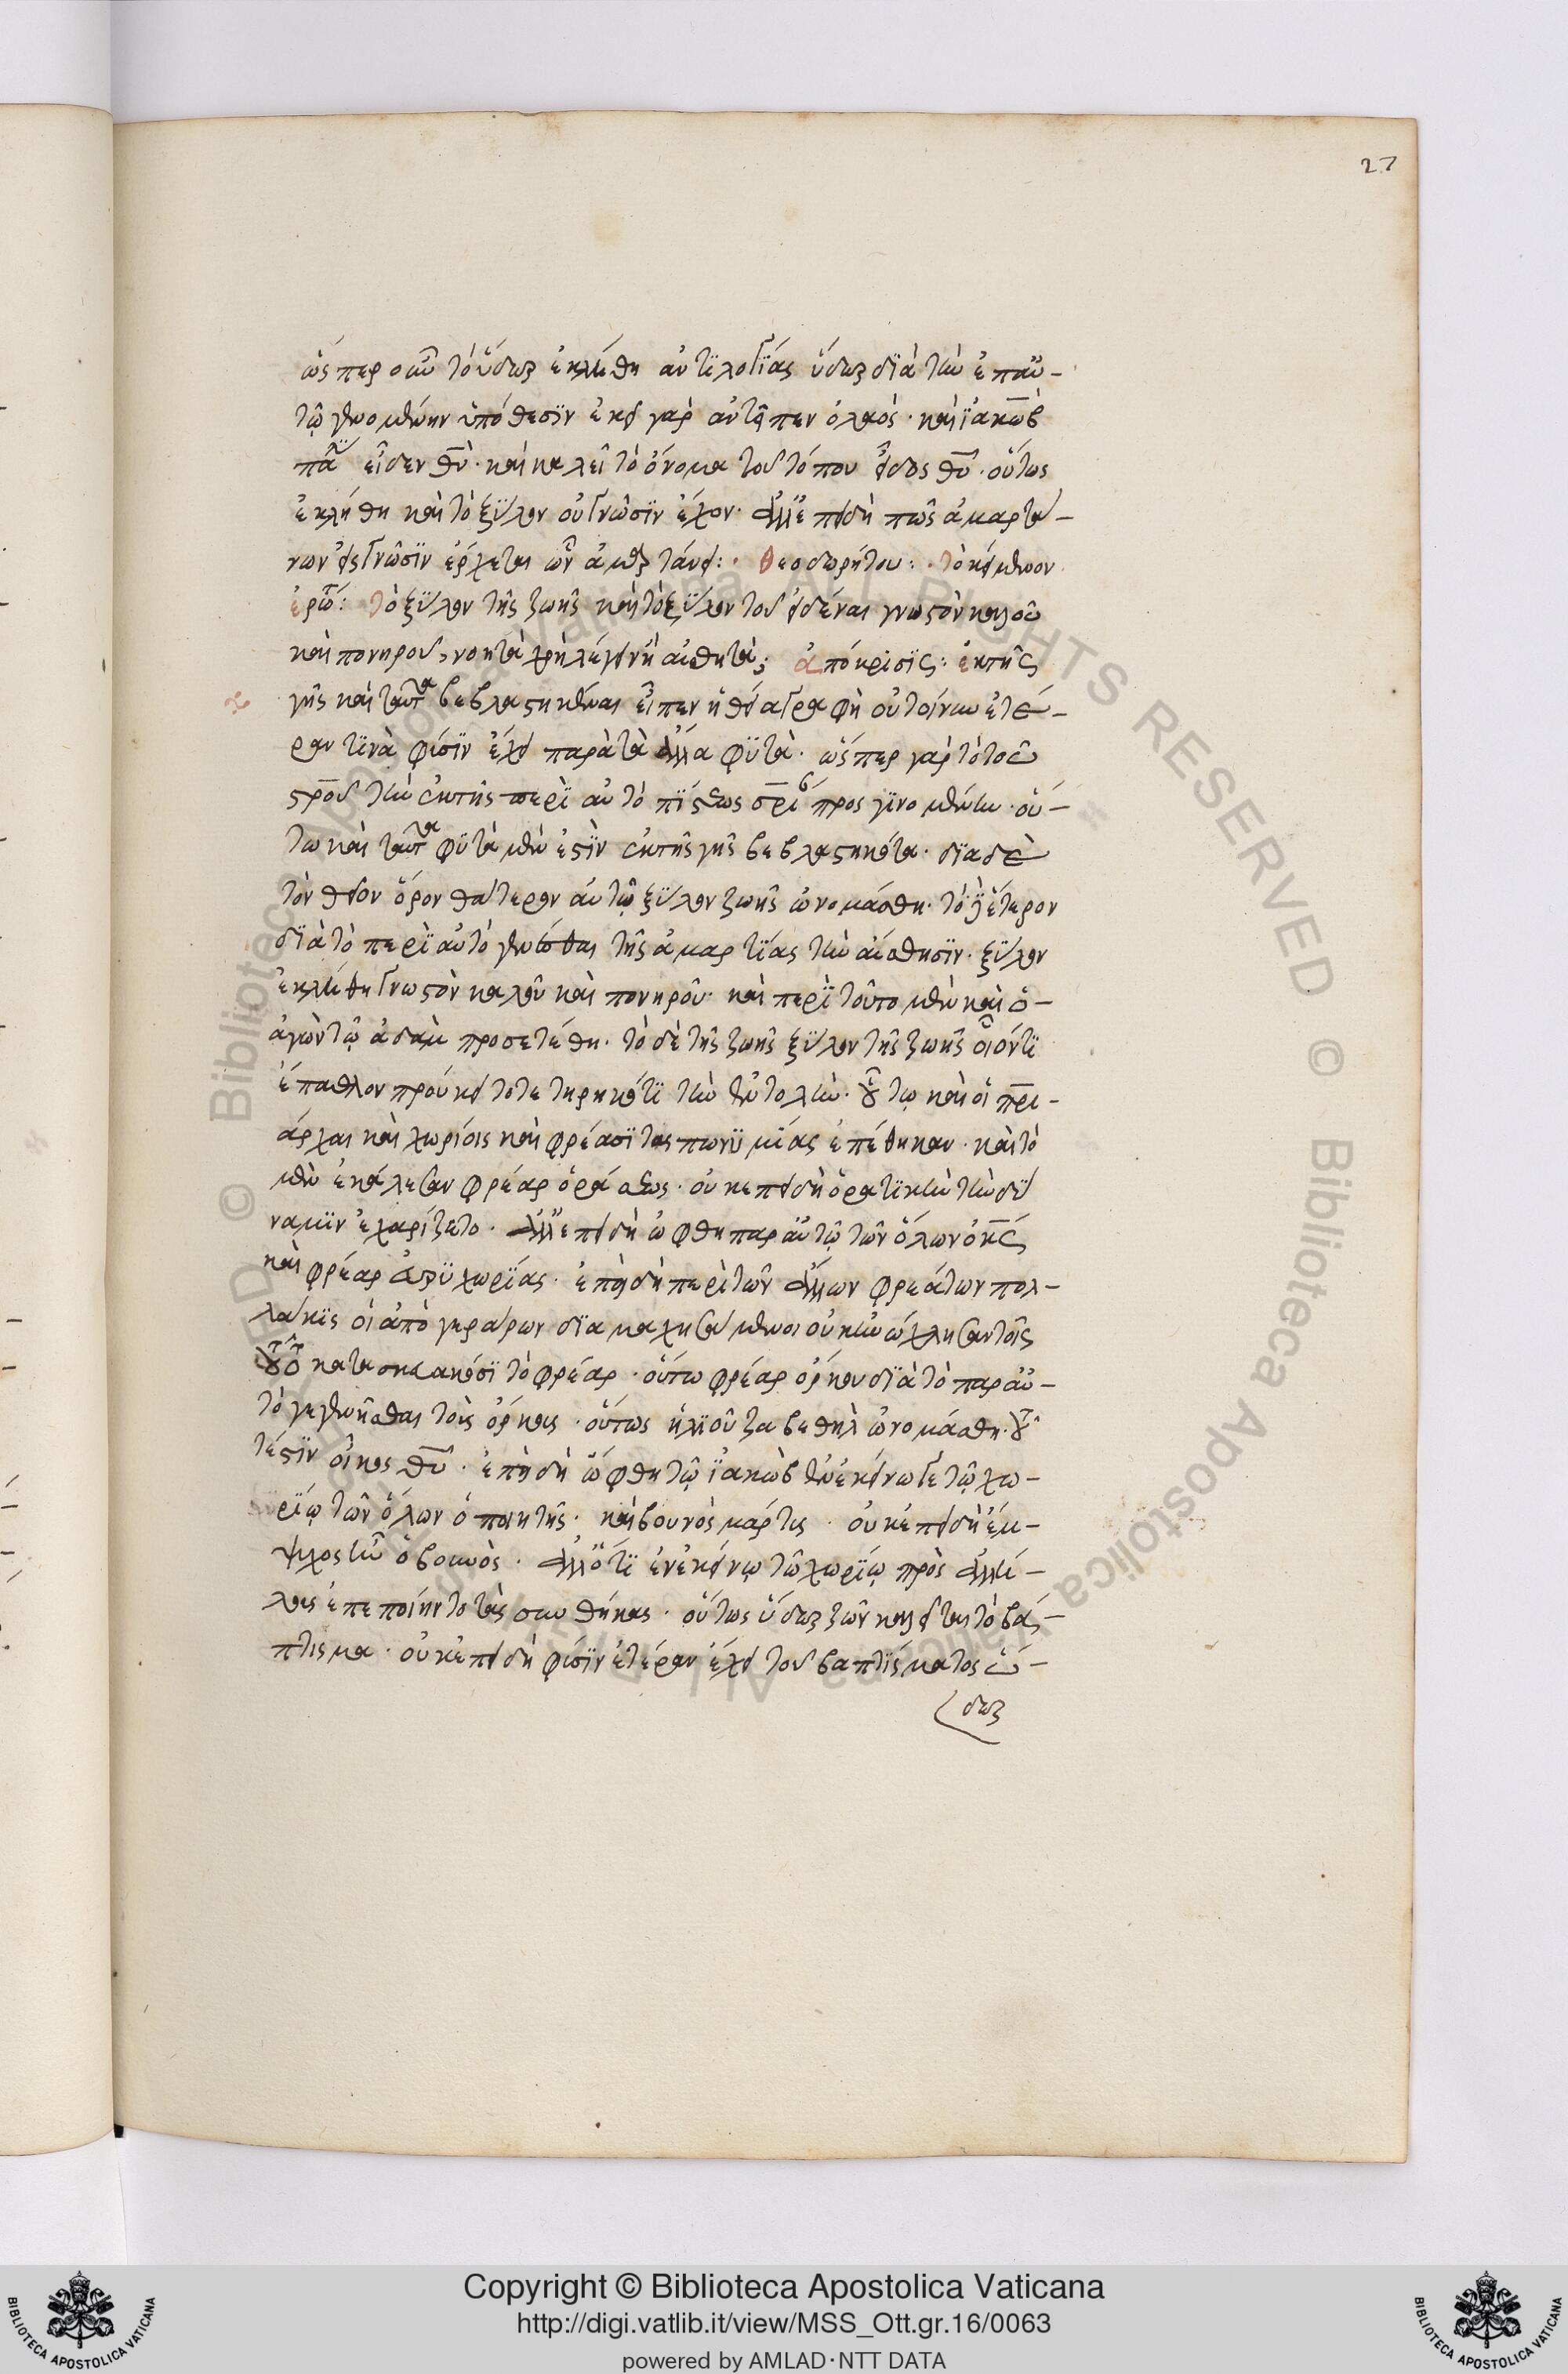 27
ὥσπερ οὖν τὸ ὕδωρ ἐκλήθη ἀντιλογίας ὕδωρ διὰ τὴν ἐπ' αὐ-
τῷ γενομένην ὑπόθεσιν ἐκεῖ γὰρ ἀντεῖπεν ὁ λαός· καὶ ἰακὼβ
εἶδεν θν· καὶ καλεῖ τὸ ὄνομα τοῦ τόπου εἶδος θυ· οὕτως
ἐκλήθη καὶ τὸ ξύλον οὐ γνῶσιν ἔχον· ἀλλ' ἐπειδὴ πῶς ἁμαρτά-
νων εἰς γνῶσιν ἔρχεται ὧν ἁμαρτάνει: · θεοδωρήτου: · τὸ κείμενον
ἐρώ: τὸ ξύλον τῆς ζωῆς καὶ τὸ ξύλον τοῦ εἰδέναι γνωστὸν καλοῦ
καὶ πονηροῦ, νοητὰ χρὴ λέγειν ἢ αἰσθητά; ἀπόκρισις: ἐκ τῆς
γῆς καὶ ταῦτα βεβλαστηκέναι εἶπεν ἡ θεία γραφὴ οὐ τοίνυν ἑτέ-
ραν τινὰ φύσιν ἔχει παρὰ τὰ ἄλλα φυτά· ὥσπερ γὰρ τὸ τοῦ
στρου τὴν ἐκ τῆς περὶ αὐτὸ πίστεως σρι προσγινομένην· οὕ-
τω καὶ ταῦτα φυτὰ μὲν ἐστὶν ἐκ τῆς γῆς βεβλαστηκότα· διὰ δὲ
τὸν θεῖον ὅρον θάτερον αὐτῷ ξύλον ζωῆς ὠνομάσθη· τὸ δὲ ἕτερον
διὰ τὸ περὶ αὐτὸ γενέσθαι τῆς ἁμαρτίας τὴν αἴσθησιν· ξύλον
ἐκλήθη γνωστὸν καλοῦ καὶ πονηροῦ· καὶ περὶ τοῦτο μὲν καὶ ὁ
ἀγὼν τῷ ἀδὰμ προσετέθη· τὸ δὲ τῆς ζωῆς ξύλον τῆς ζωῆς οἱονεί
ἔπαθλον προύκειτο τετηρηκότι τὴν ἐντολήν· οὕτω καὶ οἱ πρι-
άρχαι καὶ χωρίοις καὶ φρέασι τὰς πωνυμίας ἐπέθηκαν· καὶ τὸ
μὲν ἐκάλεσαν φρέαρ ὁράσεως· οὐκ ἐπειδὴ ὁρατικὴν τὴν δύ
ναμιν ἐχαρίζετο· ἀλλ' ἐπειδὴ ὤφθη παρ' αὐτῷ τῶν ὅλων ὁ κς
καὶ φρέαρ εὐρυχωρίας· ἐπειδὴ περὶ τῶν ἄλλων φρεάτων πολ-
λάκις οἱ ἀπὸ γεράρων διαμαχησάμενοι οὐκ ἠνώχλησαν τοῖς
τοῦτο κατασκευακόσι τὸ φρέαρ· οὕτω φρέαρ ὅρκου διὰ τὸ παρ' αὐ-
τὸ γεγενῆσθαι τοὺς ὅρκους· οὕτως ἡ λιοῦζα βεθὴλ ὠνομάσθη· τοῦ
τέστιν οἶκος θυ· ἐπειδὴ ὤφθη τῷ ἰακὼβ ἐν ἐκείνω γε τῷ χω-
ρίῳ τῶν ὅλων ὁ ποιητής· καὶ βουνὸς μάρτυς· οὐκ ἐπειδὴ ἔμ-
ψυχος ἦν ὁ βουνός· ἀλλ' ὅτι ἐν ἐκείνῳ τῷ χωρίῳ πρὸς ἀλλή-
λους ἐπεποίηντο τὰς συνθήκας· οὕτως ὕδωρ ζῶν καλεῖται τὸ βά-
πτισμα· οὐκ ἐπειδὴ φύσιν ἑτέραν ἔχει τοῦ βαπτίσματος ὕ-
δωρ
Copyright © Biblioteca Apostolica Vaticana
http://digi.vatlib.it/view/MSS_Ott.gr.16/0063
powered by AMLAD·NTT DATA
BIBLIOTECA APOSTOLICA VATICANA
BIBLIOTECA APOSTOLICA VATICANA